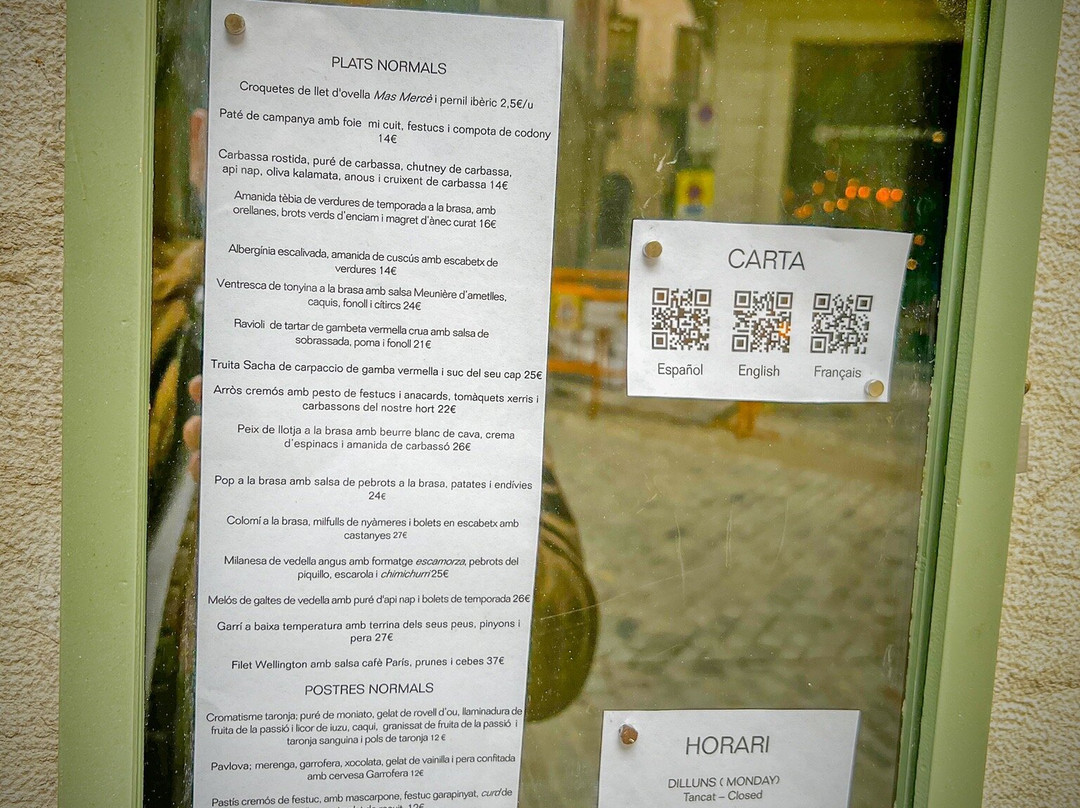 PLATS NORMALS
Croquetes de llet d'ovella Mas Mercè i pernil ibèric 2,5€/u
Paté de campanya amb foie mi cuit, festucs i compota de codony
14€
Carbassa rostida, puré de carbassa, chutney de carbassa,
api nap, oliva kalamata, anous i cruixent de carbassa 14€
Amanida tèbia de verdures de temporada a la brasa, amb
orellanes, brots verds d'enciam i magret d'ànec curat 16€
Albergínia escalivada, amanida de cuscús amb escabetx de
verdures 14€
Ventresca de tonyina a la brasa amb salsa Meunière d'ametlles,
caquis, fonoll i cítircs 24€
Ravioli de tartar de gambeta vermella crua amb salsa de
sobrassada, poma i fonoll 21€
Truita Sacha de carpaccio de gamba vermella i suc del seu cap 25€
Arròs cremós amb pesto de festucs i anacards, tomàquets xerris i
carbassons del nostre hort 22€
Peix de llotja a la brasa amb beurre blanc de cava, crema
d'espinacs i amanida de carbassó 26€
Pop a la brasa amb salsa de pebrots a la brasa, patates i endívies
24€
Colomí a la brasa, milfulls de nyàmeres i bolets en escabetx amb
castanyes 27€
Milanesa de vedella angus amb formatge escamorza, pebrots del
piquillo, escarola i chimichurri 25€
Melós de galtes de vedella amb puré d'api nap i bolets de temporada 26€
Garrí a baixa temperatura amb terrina dels seus peus, pinyons i
pera 27€
Filet Wellington amb salsa cafè París, prunes i cebes 37€
POSTRES NORMALS
Cromatisme taronja; puré de moniato, gelat de rovell d'ou, llaminadura de
fruita de la passió i licor de iuzu, caqui, granissat de fruita de la passió i
taronja sanguina i pols de taronja 12 €
Pavlova; merenga, garrofera, xocolata, gelat de vainilla i pera confitada
amb cervesa Garrofera 12€
Pastís cremós de festuc, amb mascarpone, festuc garapinyat, curd de
12€
CARTA
Español English Français
HORARI
DILLUNS ( MONDAY)
Tancat – Closed